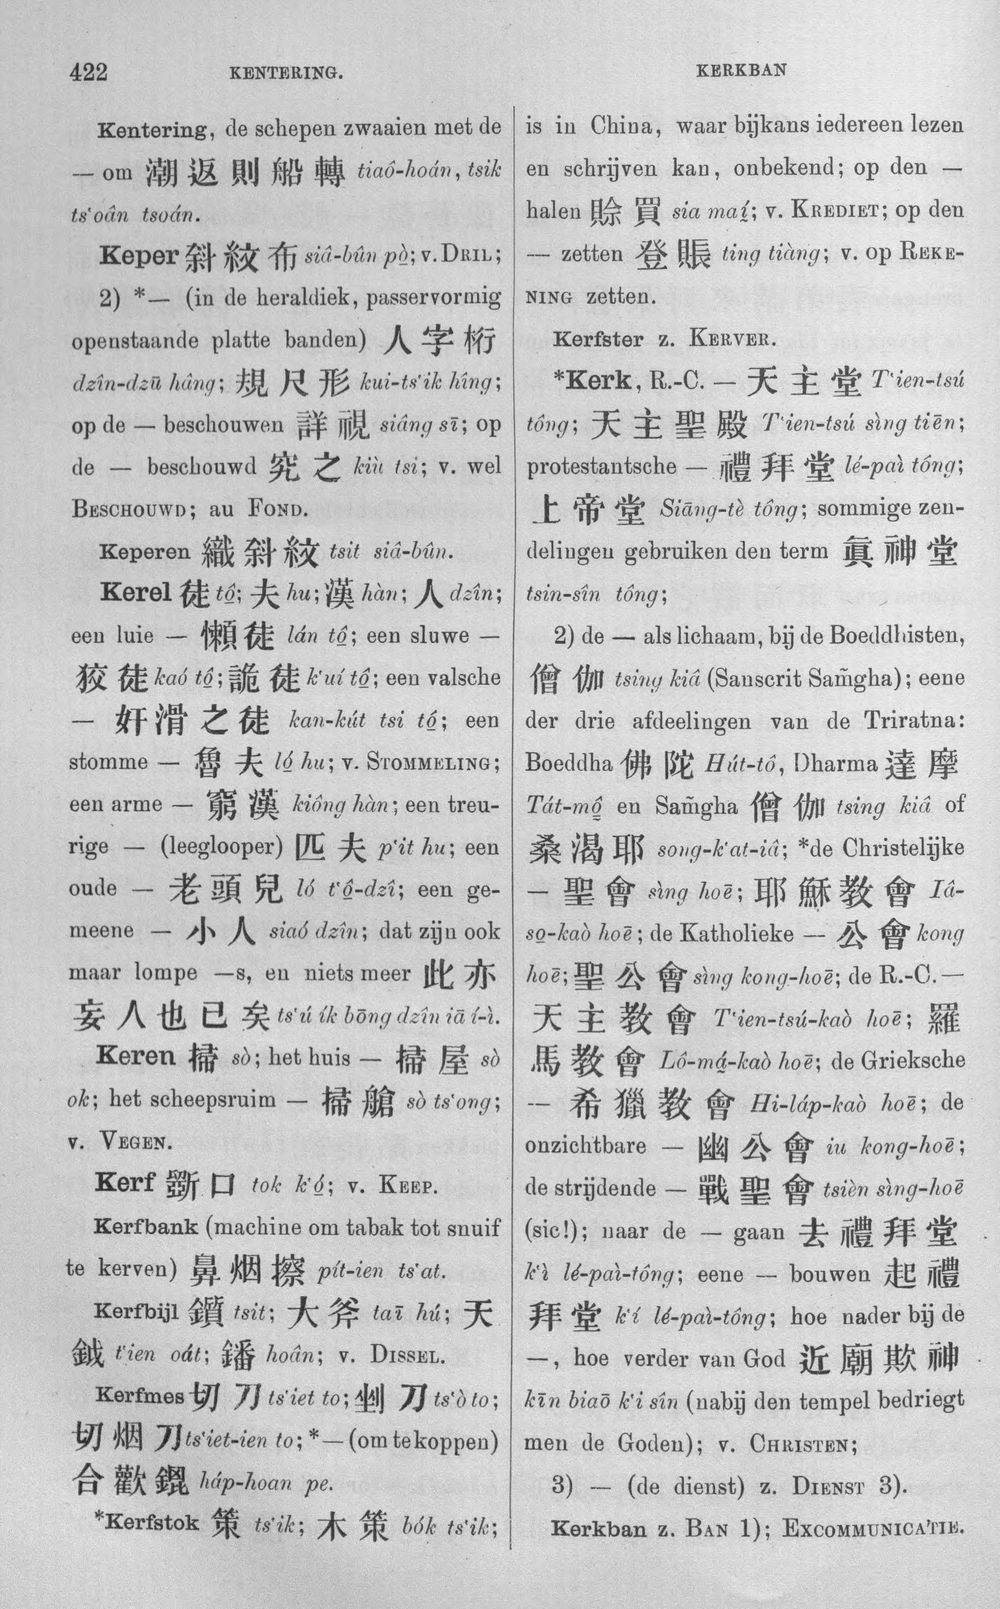 422
KENTERING.
KERKBAN
Kentering, de schepen zwaaien met de
— om 潮返則船轉 tiaô-hoán, tsik
ts‘oân tsoán.
Keper 斜紋布 siâ-bûn pò͘; v. DRIL;
2) *— (in de heraldiek, passervormig
openstaande platte banden) 人字桁
dzîn-dzū hâng; 規尺形 kui-ts‘ik hîng;
op de — beschouwen 詳視 siâng sī; op
de — beschouwd 究之 kiù tsi; v. wel
BESCHOUWD; au FOND.
Keperen 織斜紋 tsit siâ-bûn.
Kerel 徒 tô͘; 夫 hu; 漢 hàn; 人 dzîn;
een luie — 懶徒 lán tô͘; een sluwe —
狡徒 kaó tô͘; 詭徒 k‘uí tô͘; een valsche
— 奸滑之徒 kan-kút tsi tô͘; een
stomme — 魯夫 ló͘ hu; v. STOMMELING;
een arme — 窮漢 kiông hàn; een treu-
rige — (leeglooper) 匹夫 p‘it hu; een
oude — 老頭兒 ló t‘ô͘-dzî; een ge-
meene — 小人 siaó dzîn; dat zijn ook
maar lompe —s, en niets meer 此亦
妄人也已矣 ts‘ú ík bōng dzîn iā í-ì.
Keren 掃 sò; het huis — 掃屋 sò
ok; het scheepsruim — 掃艙 sò ts‘ong;
v. VEGEN.
Kerf 斲口 tok k‘ó͘; v. KEEP.
Kerfbank (machine om tabak tot snuif
te kerven) 鼻烟擦 pít-ien ts‘at.
Kerfbijl 鑕 tsit; 大斧 taī hú; 天
鉞 t‘ien oát; 鐇 hoân; v. DISSEL.
Kerfmes 切刀 ts‘iet to; 剉刀 ts‘ò to;
切烟刀 ts‘iet-ien to; *— (om te koppen)
合歡鎞 háp-hoan pe.
*Kerfstok 策 ts‘ik; 木策 bók ts‘ik;
is in China, waar bijkans iedereen lezen
en schrijven kan, onbekend; op den —
halen 賒買 sia maí; v. KREDIET; op den
— zetten 登賬 ting tiàng; v. op REKE-
NING zetten.
Kerfster z. KERVER.
*Kerk, R.-C. — 天主堂 T‘ien-tsú
tông; 天主聖殿 T‘ien-tsú sìng tiēn;
protestantsche — 禮拜堂 lé-paì tông;
上帝堂 Siāng-tè tông; sommige zen-
delingen gebruiken den term 眞神堂
tsin-sîn tông;
2) de — als lichaam, bij de Boeddhisten,
僧伽 tsing kiâ (Sanscrit Sam̃gha); eene
der drie afdeelingen van de Triratna:
Boeddha 佛陀 Hút-tô, Dharma 達摩
Tát-mô͘ en Sam̃gha 僧伽 tsing kiâ of
桑渴耶 song-k‘at-iâ; *de Christelijke
— 聖會 sìng hoē; 耶穌教會 Iâ-
so͘-kaò hoē; de Katholieke — 公會 kong
hoē; 聖公會 sìng kong-hoē; de R.-C. —
天主教會 T‘ien-tsú-kaò hoē; 羅
馬教會 Lô-má͘-kaò hoē; de Grieksche
— 希獵教會 Hi-láp-kaò hoē; de
onzichtbare — 幽公會 iu kong-hoē;
de strijdende — 戰聖會 tsièn sìng-hoē
(sic!); naar de — gaan 去禮拜堂
k‘ì lé-paì-tông; eene — bouwen 起禮
拜堂 k‘í lé-paì-tông; hoe nader bij de
—, hoe verder van God 近廟欺神
kīn biaō k‘i sîn (nabij den tempel bedriegt
men de Goden); v. CHRISTEN;
3) — (de dienst) z. DIENST 3).
Kerkban z. BAN 1); EXCOMMUNICATIE.